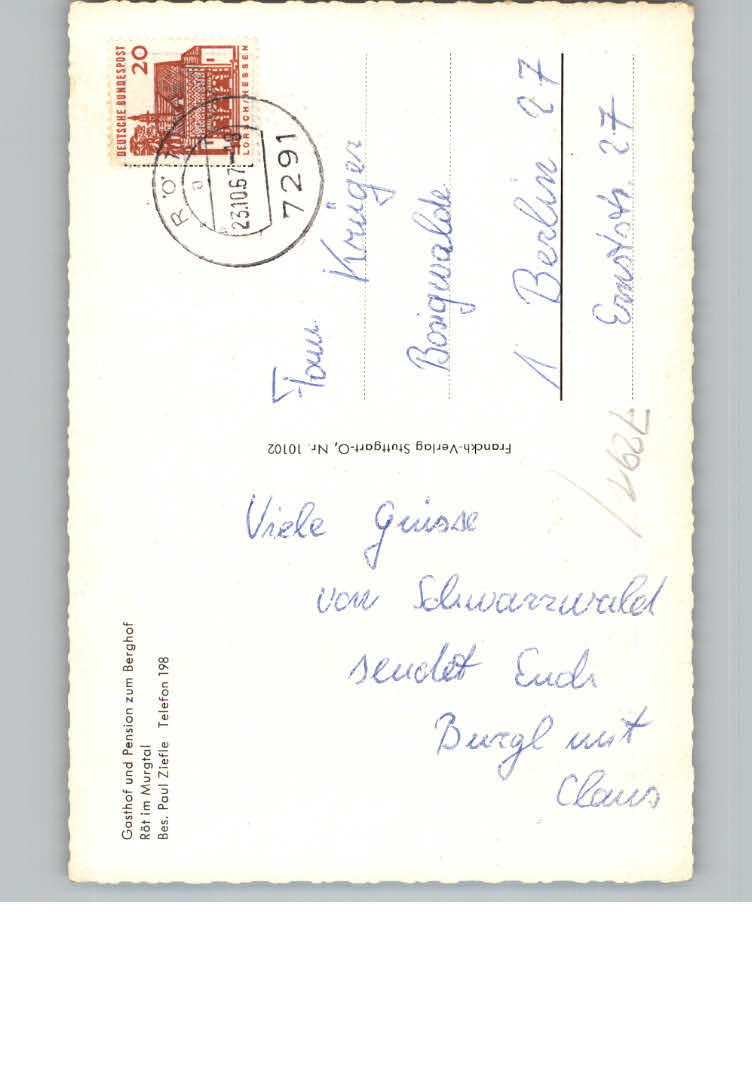 Gasthof und Pension zum Berghof
Röt im Murgtal
Bes. Paul Ziefle Telefon 198
Viele Grüsse
von Schwarzwald
sendet Euch
Burgl mit
Claus
Franckh-Verlag Stuttgart-O, Nr. 10102
DEUTSCHE BUNDESPOST
20
LORSCH/HESSEN
RÖT
a
23.10.67-18
7291
Fam Krüger
Bosigwalde
1 Berlin 27
Ernststr. 27
7297